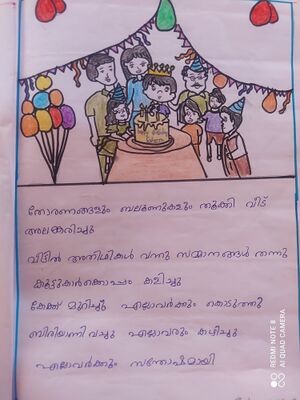 തോരണങ്ങളും ബലൂണുകളും തൂക്കി വീട്
അലങ്കരിച്ചു
വീട്ടിൽ അതിഥികൾ വന്നു സമ്മാനങ്ങൾ തന്നു
കൂട്ടുകാർക്കൊപ്പം കളിച്ചു
കേക്ക് മുറിച്ചു എല്ലാവർക്കും കൊടുത്തു
ബിരിയാണി വച്ചു എല്ലാവരും കഴിച്ചു
എല്ലാവർക്കും സന്തോഷമായി
REDMI NOTE 8
AI QUAD CAMERA